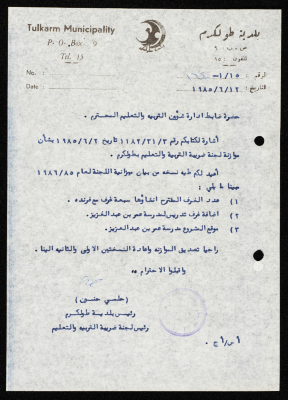 Tulkarm Municipality
P. O. Box 9
Tel. 15
No. :
Date :
بلدية طولكرم
ص . ب . ٩
تلفون ١٥
الرقم : ١/١٥ -
التاريخ : ١٩٨٥/٦/١٢
حضرة ضابط ادارة شؤون التربيه والتعليم المحترم .
أشارة لكتابكم رقم ١١٨٢/٣١/٣ تاريخ ١٩٨٥/٦/٢ بشأن
موازنة لجنة ضريبة التربيه والتعليم بطولكرم .
أعيد لكم طيه نسخه من بيان ميزانية اللجنه لعام ١٩٨٦/٨٥
مبينا ما يلي :
١) عدد الغرف المقترح انشاؤها سبعة غرف مع فرنده .
٢) اضافة غرف تدريس لمدرسة عمر بن عبد العزيز .
٣) موقع المشروع مدرسة عمر بن عبد العزيز .
راجيا تصديق الموازنه واعادة النسختين الاولى والثانيه الينا .
واقبلوا الاحترام ،،
( حلمي حنون )
رئيس بلدية طولكرم
رئيس لجنة ضريبة التربيه والتعليم
أس/أج .